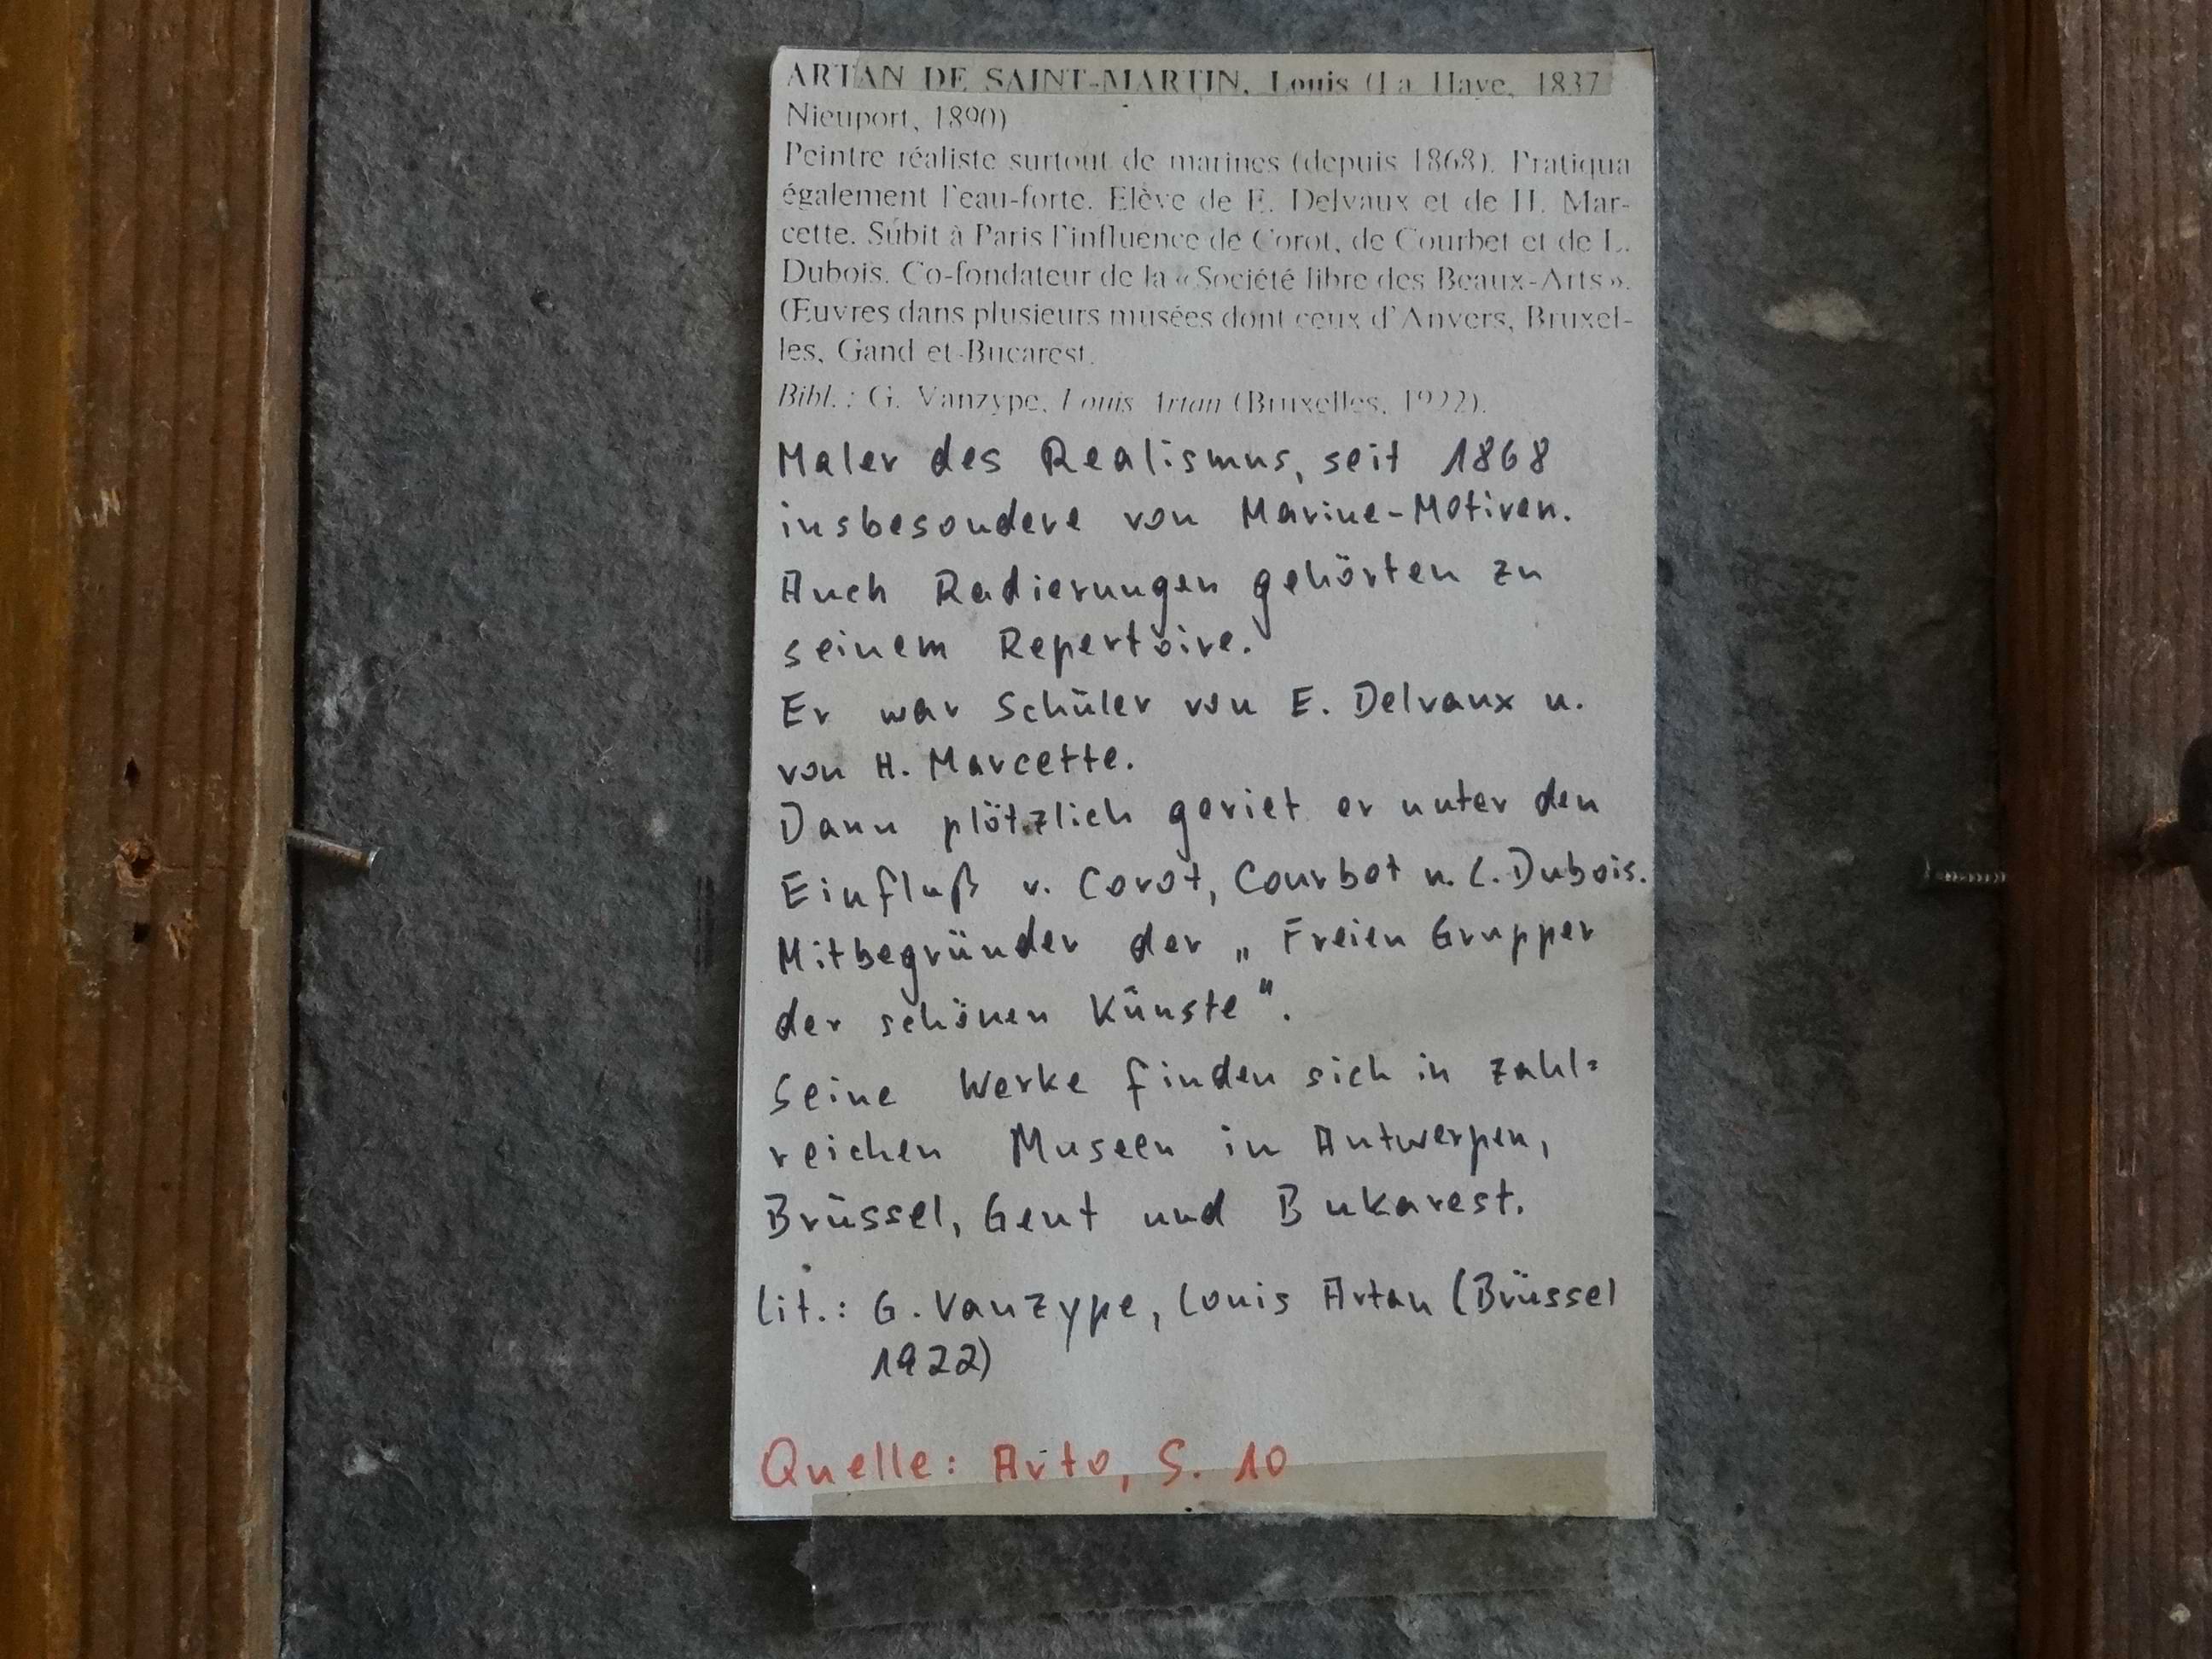 ARTAN DE SAINT-MARTIN, Louis (La Haye, 1837
Nieuport, 1890)
Peintre réaliste surtout de marines (depuis 1868). Pratiqua
également l'eau-forte. Elève de E. Delvaux et de H. Mar-
cette. Subit à Paris l'influence de Corot, de Courbet et de L.
Dubois. Co-fondateur de la «Société libre des Beaux-Arts».
Œuvres dans plusieurs musées dont ceux d'Anvers, Bruxel-
les, Gand et Bucarest.
Bibl.: G. Vanzype, Louis Artan (Bruxelles, 1922).
Maler des Realismus, seit 1868
insbesondere von Marine-Motiven.
Auch Radierungen gehörten zu
seinem Repertoire.
Er war Schüler von E. Delvaux u.
von H. Marcette.
Dann plötzlich geriet er unter den
Einfluß v. Corot, Courbet u. L. Dubois.
Mitbegründer der „Freien Grupper
der schönen Künste".
Seine Werke finden sich in zahl=
reichen Museen in Antwerpen,
Brüssel, Gent und Bukarest.
Lit.: G. Vanzype, Louis Artan (Brüssel
1922)
Quelle: Arto, S. 10